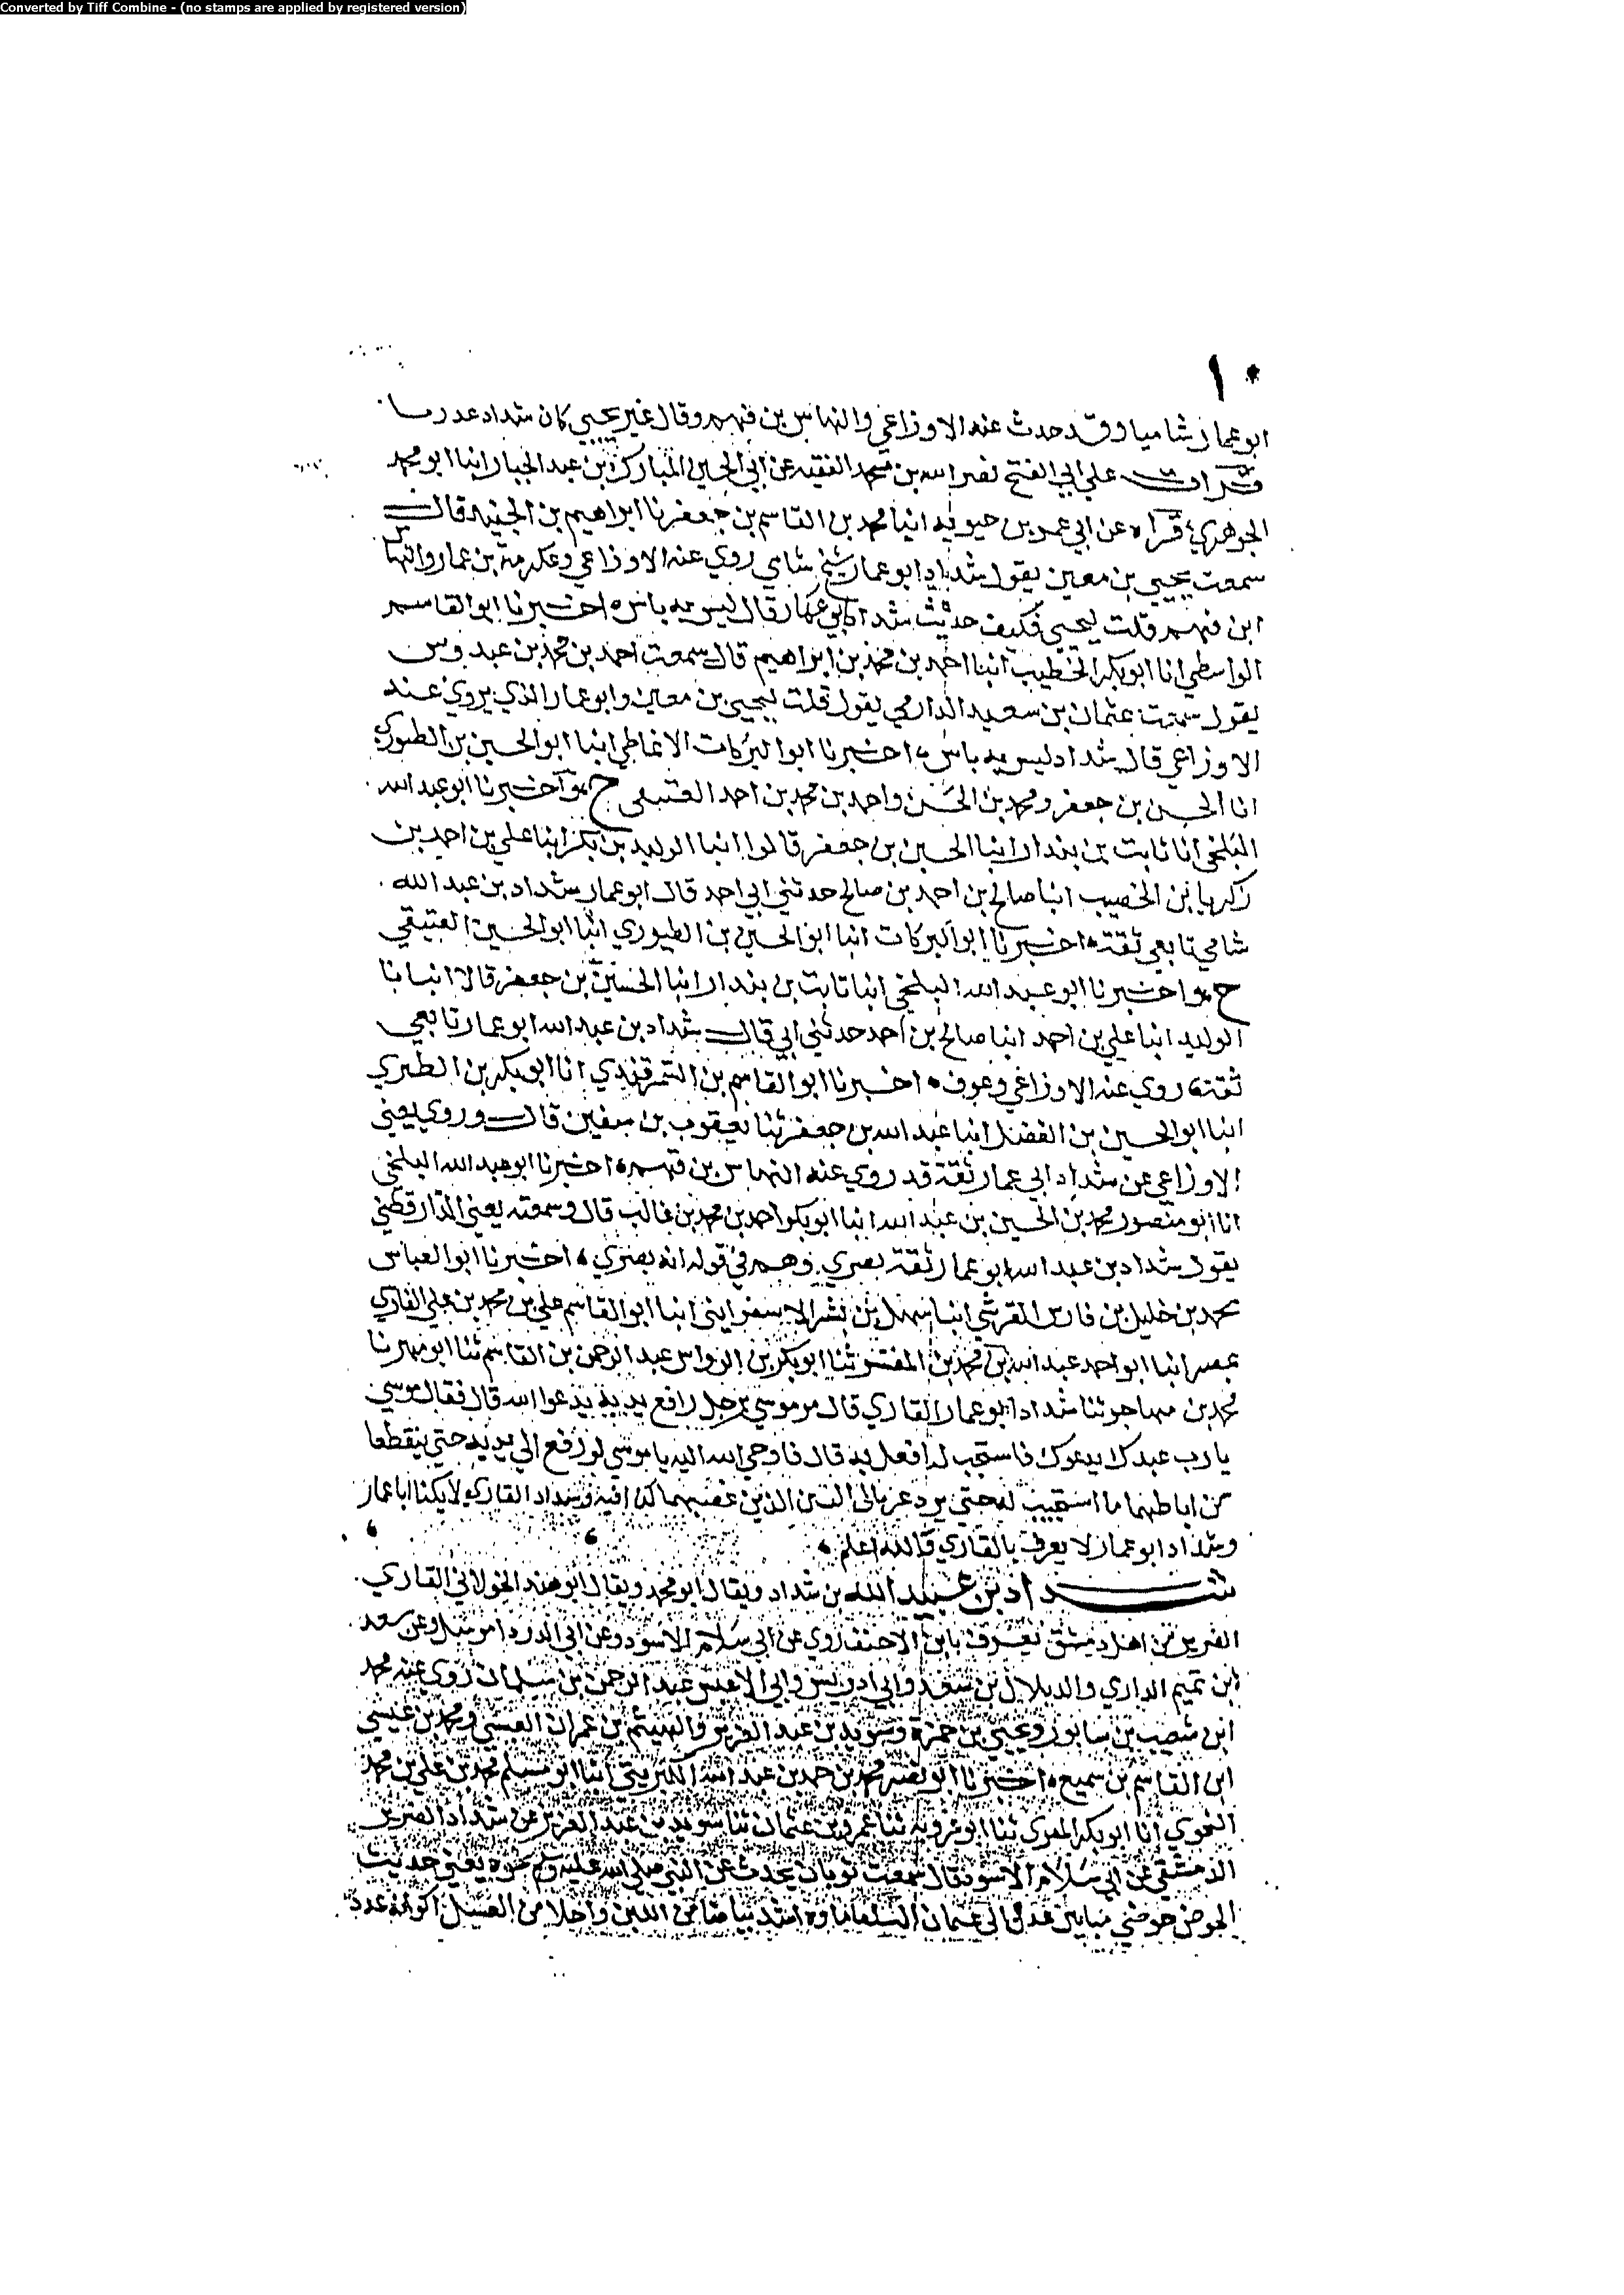 Converted by Tiff Combine - (no stamps are applied by registered version)
١٠
ابو عمار شاميا وقد حدث عنه الاوزاعي والنهاس بن فهم وقال غير يحيي كان شداد
قرات علي ابي الفتح نصر الله بن محمد الفقيه عن ابي الحسين المبارك بن عبد الجبار انبا ابو محمد
الجوهري قراه عن ابي عمر بن حيويه انبا محمد بن القاسم بن جعفر نا ابراهيم بن الجنيد قال
سمعت يحيي بن معين يقول شداد ابو عمار شيخ شامي روي عنه الاوزاعي وعكرمة بن عمار والنهاس
ابن فهم قلت ليحيي فكيف حديث شداد ابي عمار قال ليس به باس اخبرنا ابو القاسم
الواسطي انا ابو بكر الخطيب انبا احمد بن محمد بن ابراهيم قال سمعت احمد بن محمد بن عبدوس
يقول سمعت عثمان بن سعيد الدارمي يقول قلت ليحيي بن معين وابو عمار الذي يروي عنه
الاوزاعي قال شداد ليس به باس اخبرنا ابو البركات الانماطي انبا ابو الحسين بن الطيوري
انا الحسين بن جعفر ومحمد بن الحسن واحمد بن محمد بن احمد العتيقي ح واخبرنا ابو عبد الله
البلخي انا ثابت بن بندار انبا الحسين بن جعفر قالوا انبا الوليد بن بكر انبا علي بن احمد بن
زكريا بن الخصيب انبا صالح بن احمد بن صالح حدثني ابي احمد قال ابو عمار شداد بن عبد الله
شامي تابعي ثقة اخبرنا ابو البركات انبا ابو الحسين بن الطيوري انبا ابو الحسين العتيقي
ح واخبرنا ابو عبد الله البلخي انبا ثابت بن بندار انبا الحسين بن جعفر قالا انبا نا
الوليد انبا علي بن احمد انبا صالح بن احمد حدثني ابي قال شداد بن عبد الله ابو عمار تابعي
ثقة روي عنه الاوزاعي وعوف اخبرنا ابو القاسم بن السمرقندي انا ابو بكر بن الطبري
انبا ابو الحسين بن الفضل انبا عبد الله بن جعفر ثنا يعقوب بن سفين قال وروي يعني
الاوزاعي عن شداد ابي عمار ثقة قد روي عنه النهاس بن فهم اخبرنا ابو عبد الله البلخي
انا ابو منصور محمد بن الحسين بن عبد الله انبا ابو بكر احمد بن محمد بن غالب قال وسمعته يعني الدارقطني
يقول شداد بن عبد الله ابو عمار ثقة بصري وهم في قوله انه بصري اخبرنا ابو العباس
محمد بن خليل بن فارس القرشي انبا سهل بن بشر الاسفرايني انبا ابو القاسم علي بن محمد بن علي الفارسي
بمصر انبا ابو احمد عبد الله بن محمد بن المفسر ثنا ابو بكر بن الرواس عبد الرحمن بن القاسم ثنا ابو مسهر نا
محمد بن مهاجر ثنا شداد ابو عمار القاري قال مر موسي برجل رافع يديه يدعوا الله قال فقال موسي
يا رب عبدك يدعوك فاستجب له افعل به قال فاوحي الله اليه يا موسي لو رفع الي يديه حتي ينقطعا
من اباطهما ما استجيب له حتي يرد الذين كذا فيه وشداد القاري لا يكنا ابا عمار
وشداد ابو عمار لا يعرف بالقاري فالله اعلم
شداد بن عبيد الله بن شداد ويقال ابو محمد ويقال ابو هند الخولاني القاري
الضرير من اهل دمشق يعرف بابن الاحنف روي عن ابي سلام الاسود وعن ابي الدردا مرسل وعن سعد
ابن تميم الداري والد بلال بن سعد وابي ادريس وابي الاعيس عبد الرحمن بن سلمان روي عنه محمد
ابن شعيب بن سابور ويحيي بن حمزة وسويد بن عبد العزيز والهيثم بن عمران العبسي ومحمد بن عيسي
ابن القاسم بن سميع اخبرنا ابو نصر محمد بن حمد بن عبد الله الكبريتي انبا ابو مسلم محمد بن علي بن محمد
النحوي انا ابو بكر المقري ثنا ابو عروبة ثنا عمرو بن عثمان ثنا سويد بن عبد العزيز عن شداد الضرير
الدمشقي عن ابي سلام الاسود قال سمعت ثوبان يحدث عن النبي صلي الله عليه وسلم نحوه يعني حديث
الحوض حوضي ما بين عدن الي عمان البلقا ماوه اشد بياضا من اللبن واحلا من العسل اكوابه عدد